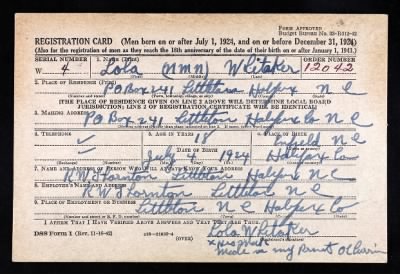 FORM APPROVED
Budget Bureau No.
REGISTRATION CARD (Men born on or after July 1, 1924, and on or before December 31, 1924)
(Also for the registration of men as they reach the 18th anniversary of the date of their birth on or after January 1, 1943.)
SERIAL NUMBER 1. NAME (Print) ORDER NUMBER
W 4 Lola (NMN) Whitaker 12042
(First) (Middle) (Last)
2. PLACE OF RESIDENCE (Print)
PO Box 241 Littleton Halifax N C
(Number and street) (Town, township, village, or city) (County) (State)
[THE PLACE OF RESIDENCE GIVEN ON LINE 2 ABOVE WILL DETERMINE LOCAL BOARD
JURISDICTION; LINE 2 OF REGISTRATION CERTIFICATE WILL BE IDENTICAL]
3. MAILING ADDRESS
PO Box 241 Littleton Halifax Co N C
4. TELEPHONE 5. AGE IN YEARS 6. PLACE OF BIRTH
18 N C
DATE OF BIRTH
July 4 1924 Halifax Co
7. NAME AND ADDRESS OF PERSON WHO WILL ALWAYS KNOW YOUR ADDRESS
R W Thornton Littleton Halifax N C
8. EMPLOYER'S NAME AND ADDRESS
R. W. Thornton Littleton N C
9. PLACE OF EMPLOYMENT OR BUSINESS
Littleton Halifax Co N C
I AFFIRM THAT I HAVE VERIFIED ABOVE ANSWERS AND THAT THEY ARE TRUE.
DSS Form 1 (Rev. 11-16-42) (OVER)
Lola Whitaker
x his mark
made in my